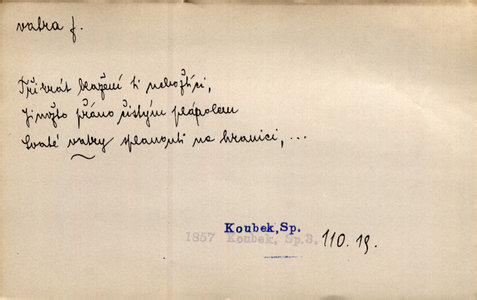 vatra f.
Třikrát blažení ti nebožtíci,
Jimžto přáno čistým plápolem
Svaté vatry splanouti na hranici, ...
Koubek, Sp.
1857 Koubek, Sp.3. 110.19.